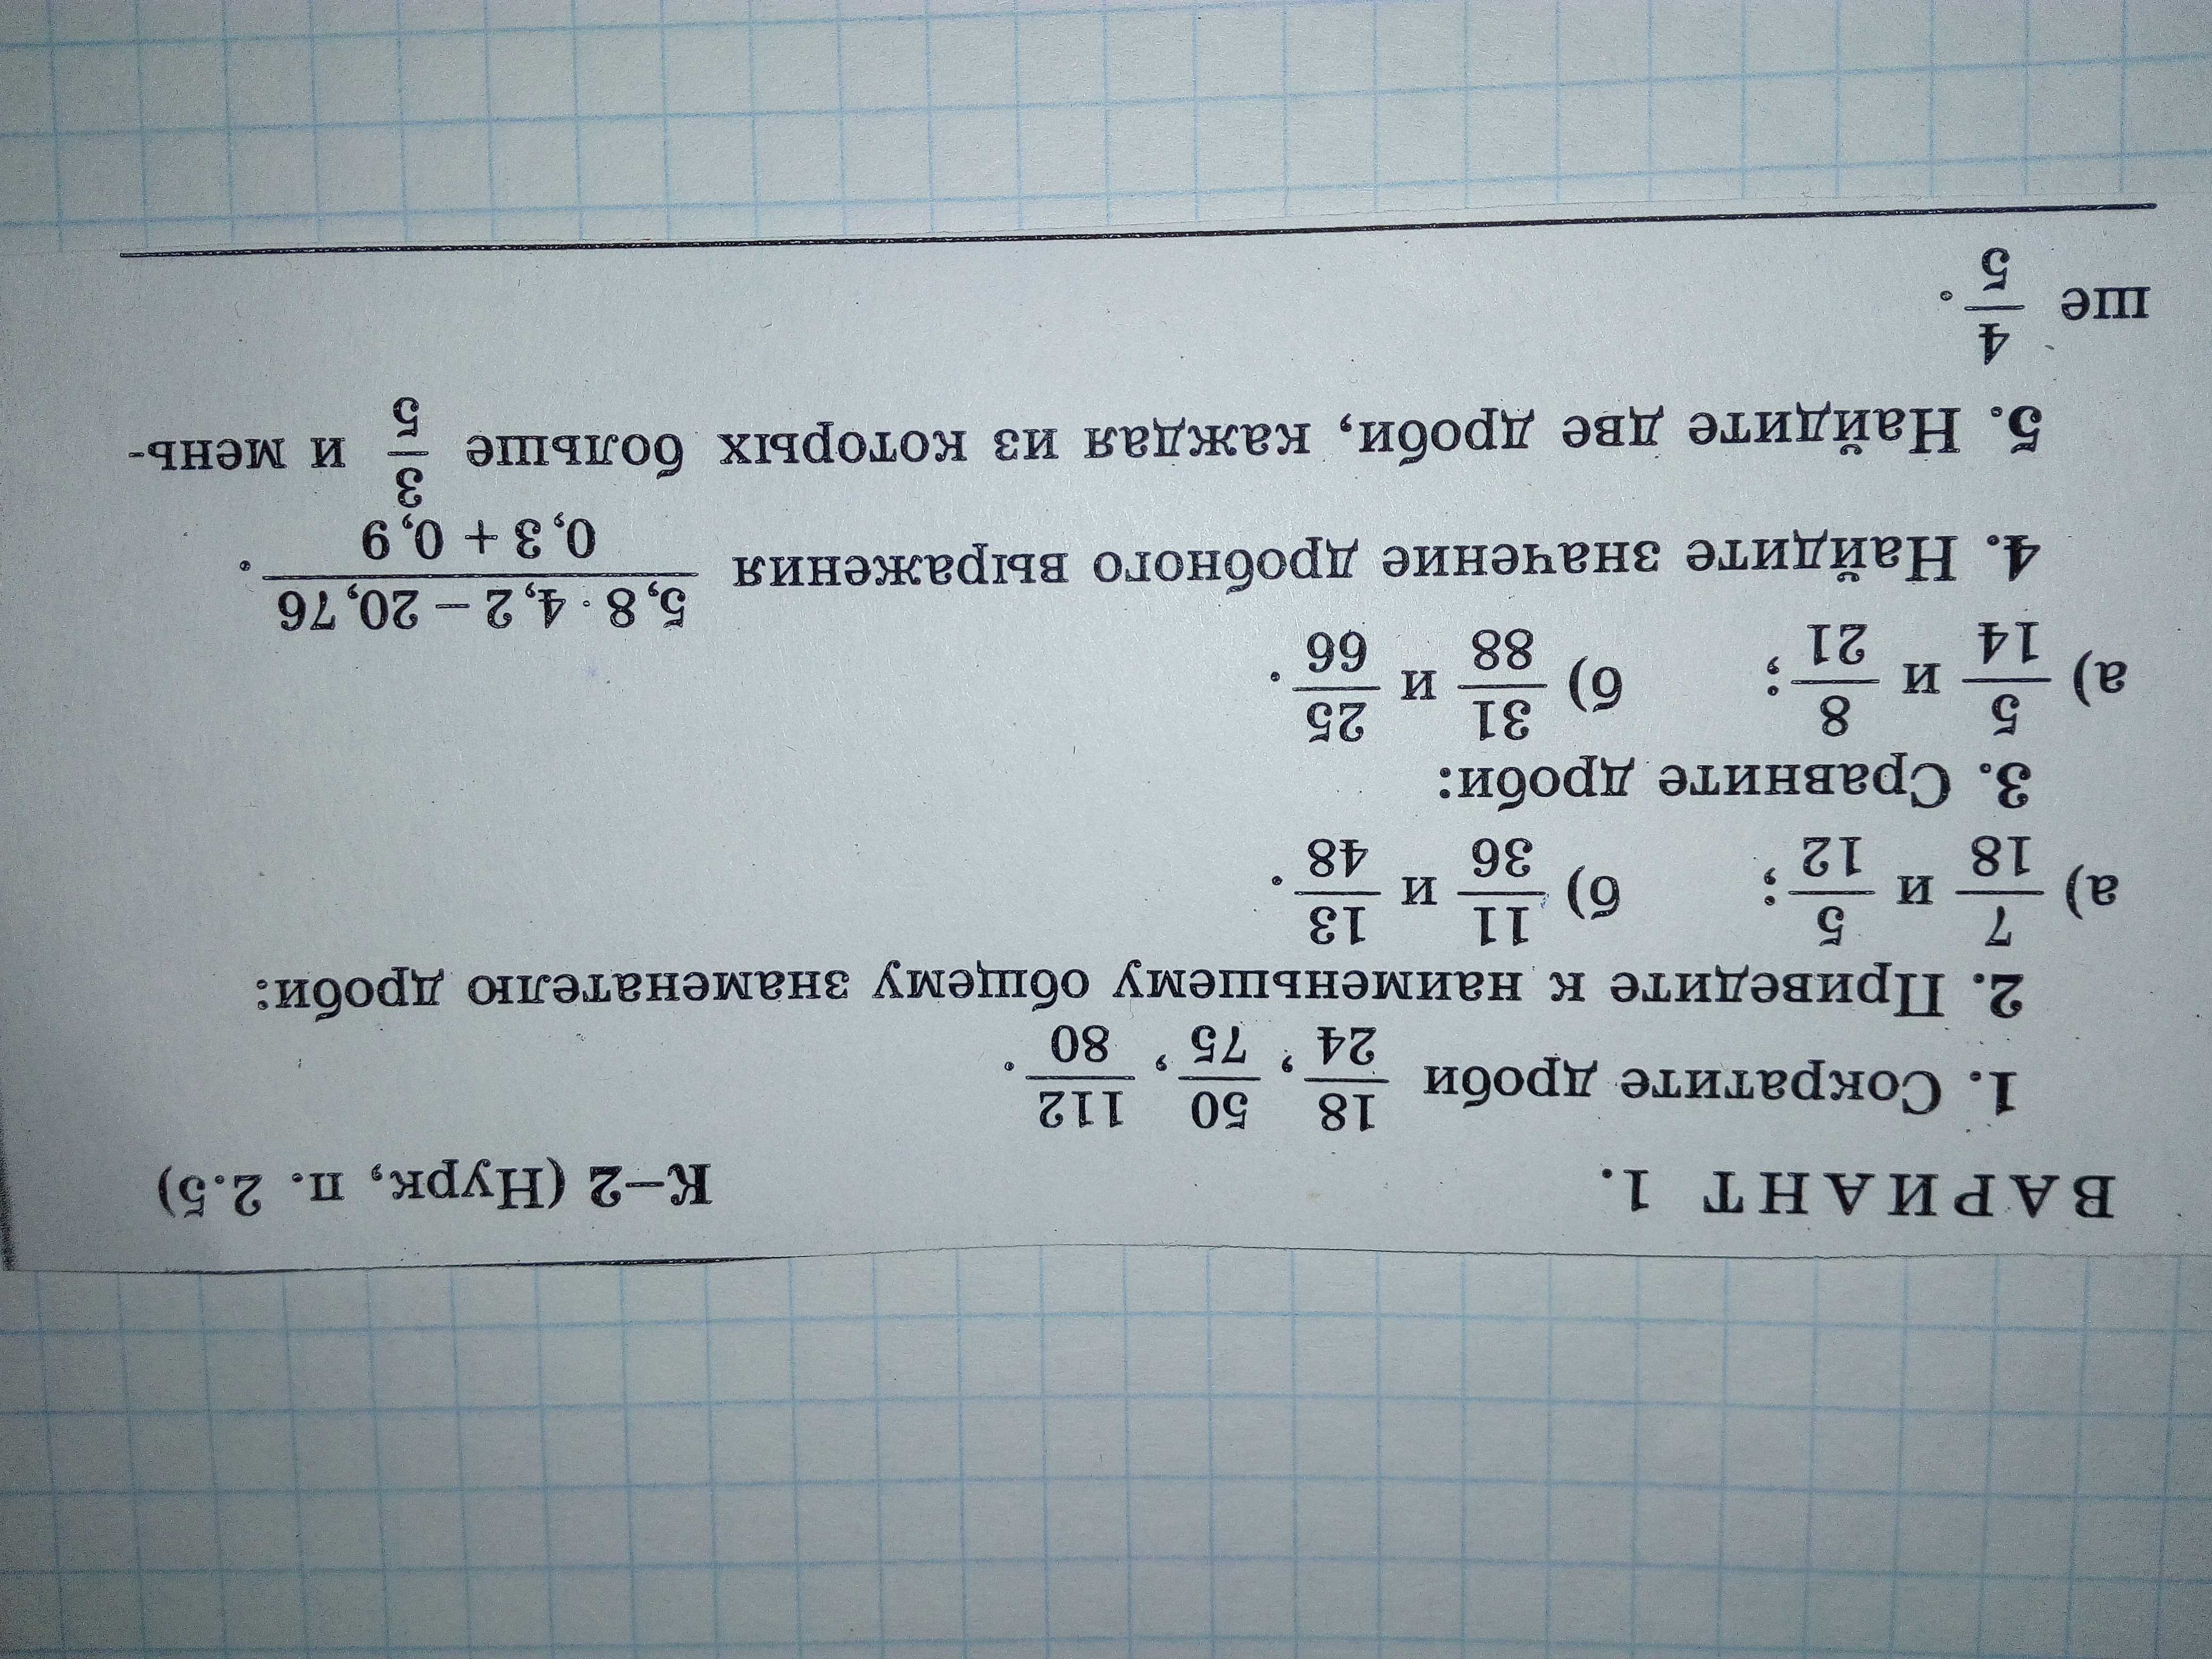 ВАРИАНТ 1. К–2 (Нурк, п. 2.5)
1. Сократите дроби 18/24, 50/75, 112/80.
2. Приведите к наименьшему общему знаменателю дроби:
а) 7/18 и 5/12; б) 11/36 и 13/48.
3. Сравните дроби:
а) 5/14 и 8/21; б) 31/88 и 25/66.
4. Найдите значение дробного выражения (5,8 · 4,2 – 20,76)/(0,3 + 0,9).
5. Найдите две дроби, каждая из которых больше 3/5 и мень-
ше 4/5.